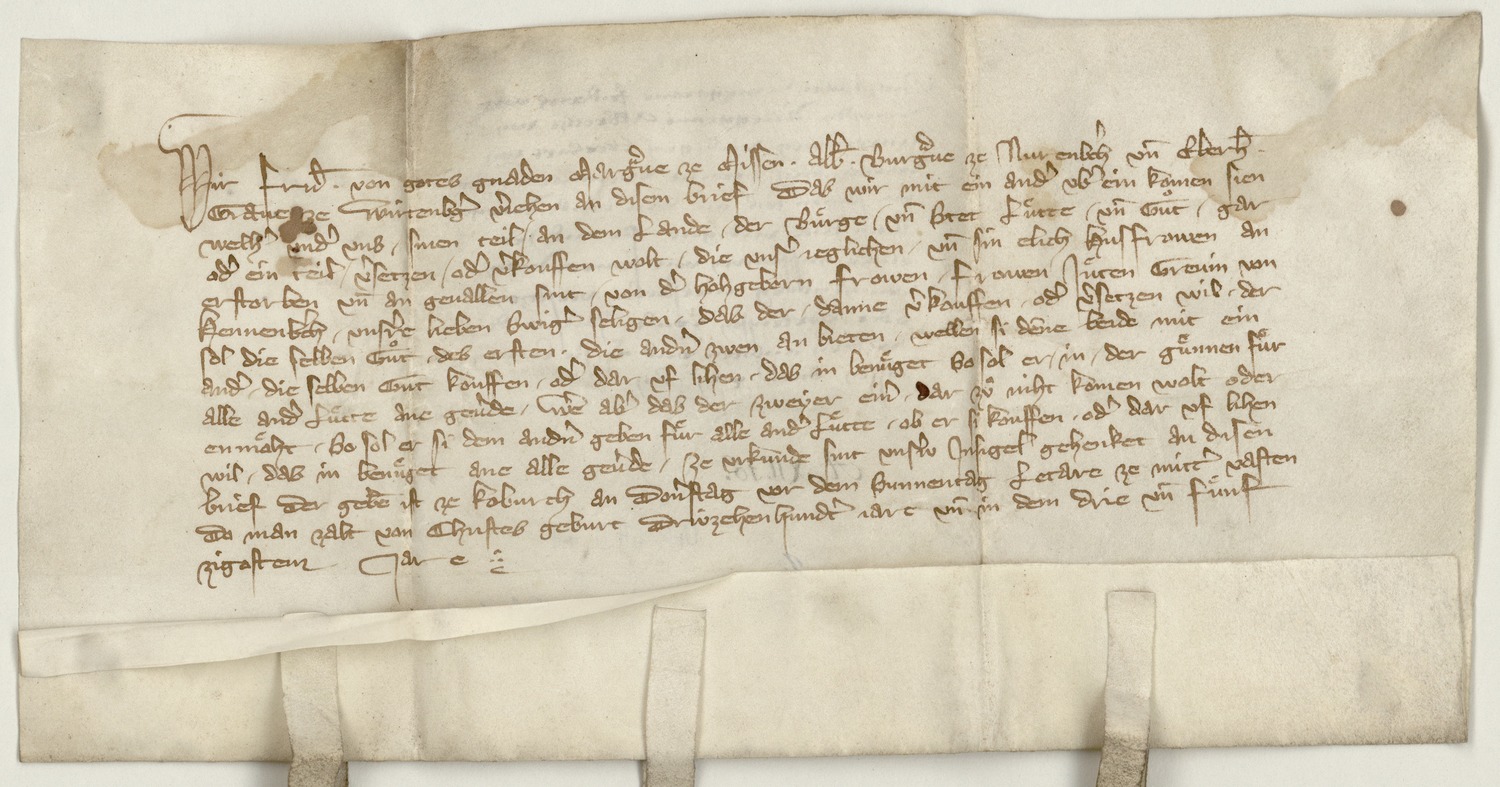 Wir Frid̄. von gotes gnaden Marg͛ue ze Missen. Alb͛. Burg͛ue ze Nurenb͛ch vn̄ Eberh̄.
Graue ze Wirtenb͛g v͛iehen an disem brief Das wir mit ein and͛ vb͛ ein komen sien
welh͛ vnd͛ vns, sinen teil, an dem Lande, der Bu͛rge, vn̄ Stet Lu͛tte, vn̄ Gůt, gar
od͛ ein teil, v͛setzen, od͛ v͛kouffen wolt, die vns͛ ieglichen, vn̄ sin elich Husfrowen an
erstorben vn̄ an geuallen sint, von d͛ hohgeborn frowen, Frowen Ju͛ten Greuin von
Hennenb͛ch, vnsr͛e lieben Swig͛ seligen, das der, danne v͛kouffen, od͛ v͛setzen wil, der
sol die selben Gůt, des ersten, die and͛n zwen an bieten, wellen si dēne beide mit ein
and͛, die selben Gůt kouffen, od͛ dar vf lihen, das in benu͛get So sol er, in, der gu͛nnen fu͛r
alle and͛ Lu͛tte ane geu͛de, We͛ ab͛ das der zweyer ein͛, dar zů niht komen wolt oder
enmo͛ht, So sol er si dem and͛n geben fu͛r alle and͛ Lu͛tte, ob er si kouffen, od͛ dar vf lihen
wil, das in benu͛get ane alle geu͛de, Ze vrkunde sint vnsr͛v Insigel gehenket an disen
brief Der gebē ist ze Koburch an Don͛stag vor dem Sunnentag Letare ze mitt͛ vasten
Do man zalt von Christes geburt Driwzehenhund͛t iart vn̄ in dem drie vn̄ fu͛nf
zigostem Jar e